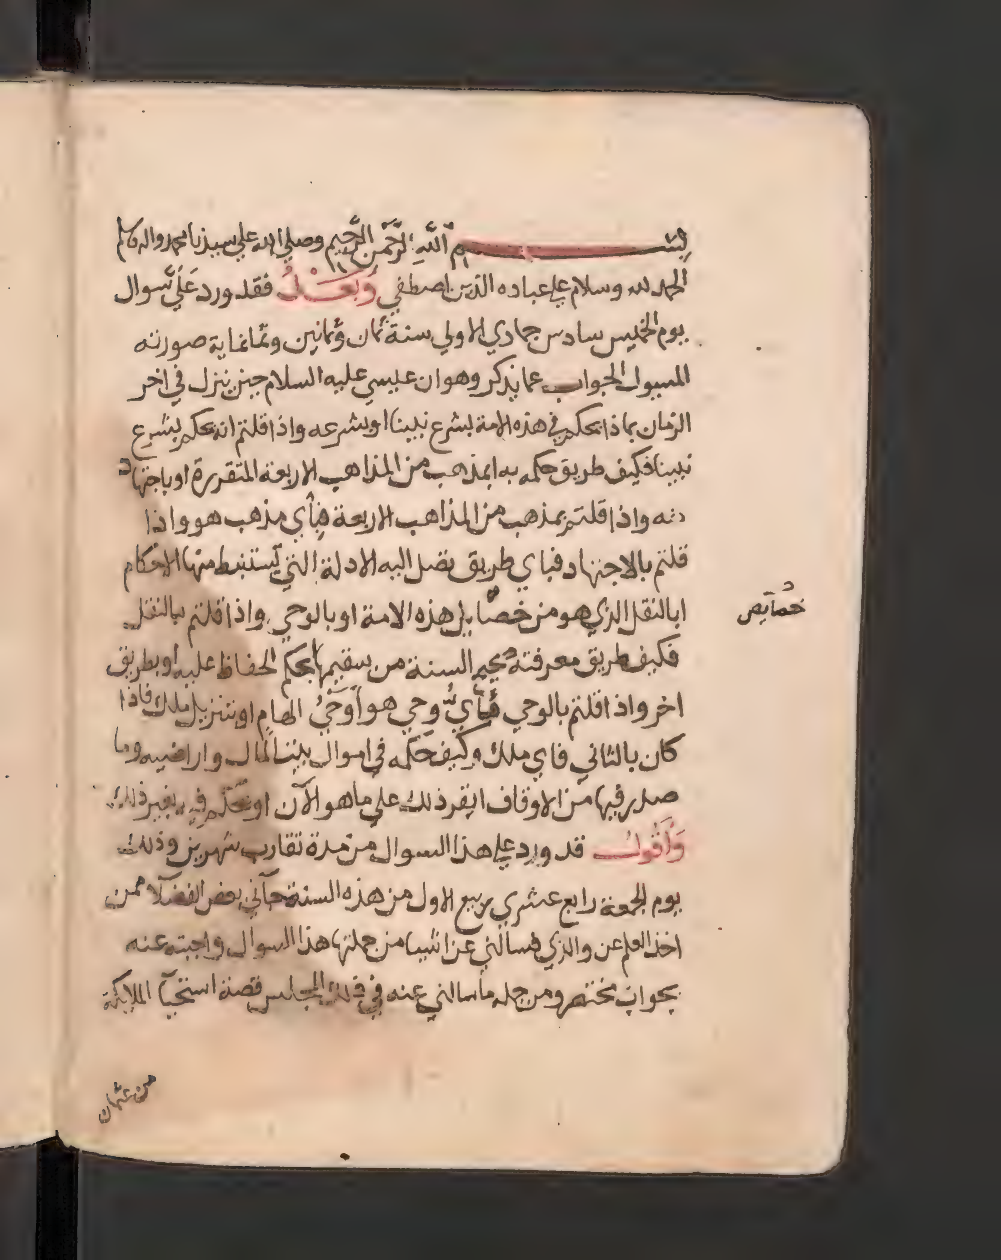 بسم الله الرحمن الرحيم وصلي الله علي سيدنا محمد واله وسلم
الحمد لله وسلام علي عباده الذين اصطفي وَبَعْدُ فقد ورد عَلَيَّ سوال
يوم الخميس سادس جمادي الاولي سنة ثمان وثمانين وثمانماية صورته
المسول الجواب عما يذكر وهو ان عيسي عليه السلام حين ينزل في اخر
الزمان بماذا يحكم في هذه الامة بشرع نبينا او بشرعه واذا قلتم انه يحكم بشرع
نبينا فكيف طريق حكمه به ابمذهب من المذاهب الاربعة المتقررة او باجتهاد
منه واذا قلتم بمذهب من المذاهب الاربعة فبأي مذهب هو واذا
قلتم بالاجتهاد فباي طريق تصل اليه الادلة التي يستنبط منها الاحكام
ابالنقل الذي هو من خصايص هذه الامة او بالوحي واذا قلتم بالنقل
خصايص
فكيف طريق معرفته صحيح السنة من سقيمها ابحكم الحفاظ عليه او بطريق
اخر واذا قلتم بالوحي فبأي وحي هو أوَحْيُ الهام او بتنزيل ملك فاذا
كان بالثاني فاي ملك وكيف حكمه في اموال بيت المال واراضيه وما
صدر فيها من الاوقاف ايقر ذلك علي ما هو الآن او يحكم فيه بغير ذلك
وَأَقُولُ قد ورد علي هذا السوال من مدة تقارب شهرين وذلك
يوم الجمعة رابع عشري ربيع الاول من هذه السنة جآني بعض الفضلآ ممن
اخذ العلم عن والدي فسالني عن اشيا من جملتها هذا السوال واجبته عنه
بجواب مختصر ومن جملة ما سالني عنه في ذلك المجلس قصة استحيآ الملايكة
من عثمان